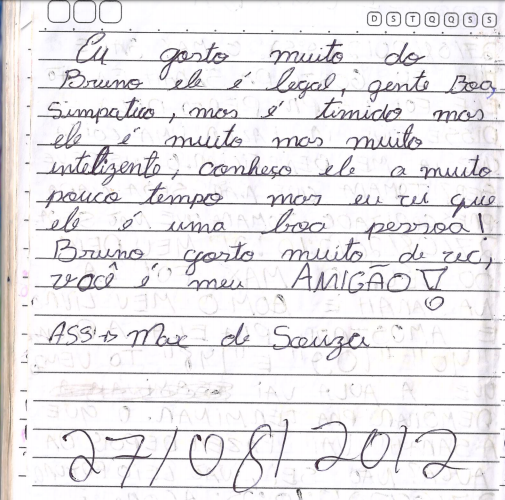 D S T Q Q S S
Eu gosto muito do
Bruno ele é legal, gente Boa,
simpatico, mas é timido mas
ele é muito mas muito
inteligente, conheço ele a muito
pouco tempo mas eu sei que
ele é uma boa pessoa!
Bruno gosto muito de vc,
você é meu AMIGÃO!
ASS→ Max de Souza
27/08/2012